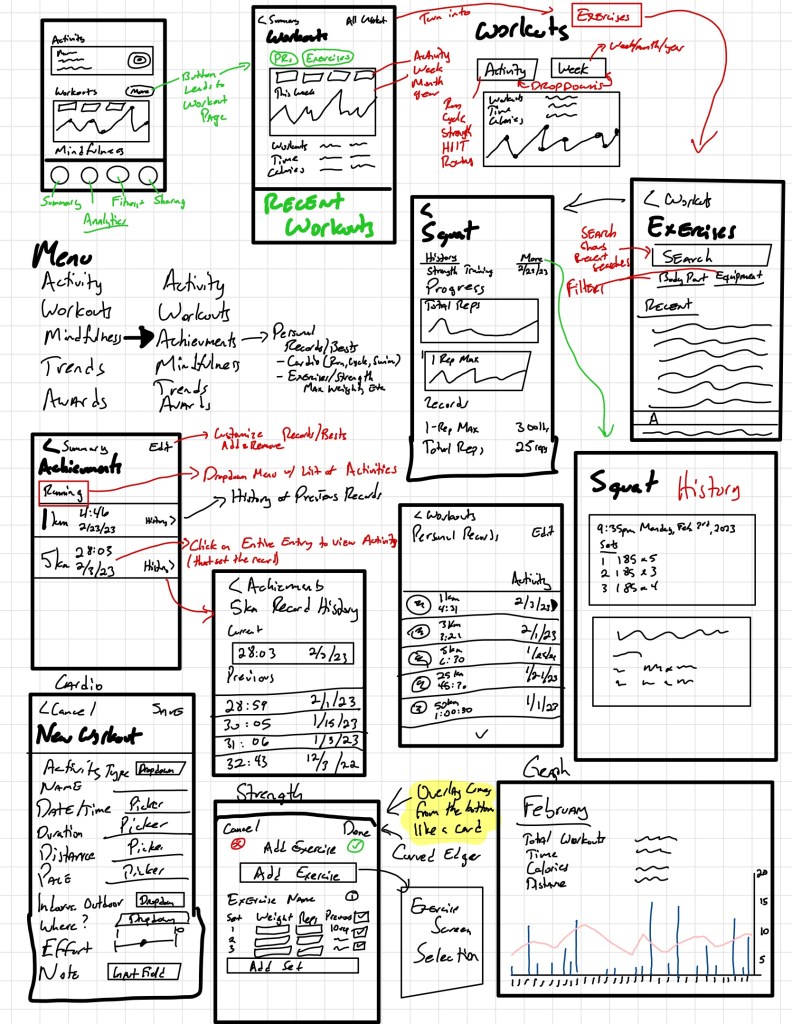 Activity
Workouts
More
Mindfulness
Summary
Analytics
Fitness
Sharing
Button
Leads to
Workout
Page
< Summary
Workouts
PRs
Exercises
This week
Workouts
Time
Calories
RECENT
Workouts
Activity
Week
Month
Year
Turn into
Exercises
Workouts
Week/month/year
Activity
Week
DROPDOWNS
Run
Cycle
Strength
HIIT
Workouts
Time
Calories
Menu
Activity
Workouts
Mindfulness
Trends
Awards
Activity
Workouts
Achievements
Mindfulness
Trends
Awards
Personal
Records/Bests
- Cardio (Run, Cycle, Swim)
- Exercises/Strength
Max Weight, Etc
<
Squat
History
More
Strength Training
2/23/23
Progress
Total Reps
1 Rep Max
Records
1-Rep Max
300lb
Total Reps
25 reps
< Workout
Exercises
SEarch
Body Part
Equipment
RECENT
A
SEARCH
Shows
Recent
searches
Filter
< Summary
Edit
Achievements
Running
1km
4:46
2/23/23
History >
5km
28:03
2/3/23
History >
Customize Records/Bests
Add & Remove
Dropdown Menu w/ List of Activities
History of Previous Records
Click on Entire Entry to view Activity
(that set the record)
< Achievments
5km Record History
Current
28:03
2/3/23
Previous
28:59
2/1/23
30:05
1/15/23
31:06
1/3/23
32:43
12/3/22
< Workouts
Personal Records
Edit
Activity
1km
4:31
2/3/23
3km
2/1/23
5km
25km
50km
1:00:30
1/1/23
Squat History
9:35pm Monday, Feb 23rd, 2023
Sets
1 185 x 5
2 185 x 3
3 185 x 4
Cardio
< Cancel
SAVE
New Workout
Activity Type
Dropdown
NAME
DATE/Time
Picker
Duration
Picker
Distance
Picker
PACE
Picker
Indoor/Outdoor
Dropdown
Where?
Dropdown
Effort
1
10
Note
Input Field
Strength
Cancel
Done
Add Exercise
Add Exercise
Exercise Name
Set
Weight
Reps
Previous
1
2
3
Add Set
Overlay Comes
from the bottom
like a card
Curved Edges
Exercise
Screen
Selection
Graph
February
Total Workouts
Time
Calories
Distance
20
15
10
5